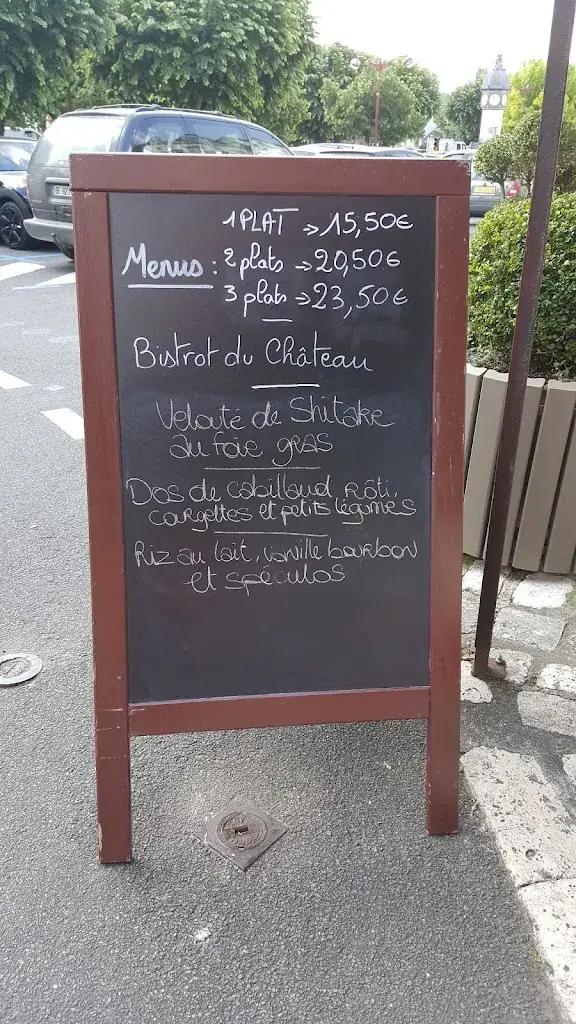 1 PLAT → 15,50€
Menus : 2 plats → 20,50€
3 plats → 23,50€
Bistrot du Château
Velouté de Shitake
au foie gras
Dos de cabillaud rôti,
courgettes et petits légumes
Riz au lait, vanille bourbon
et spéculos